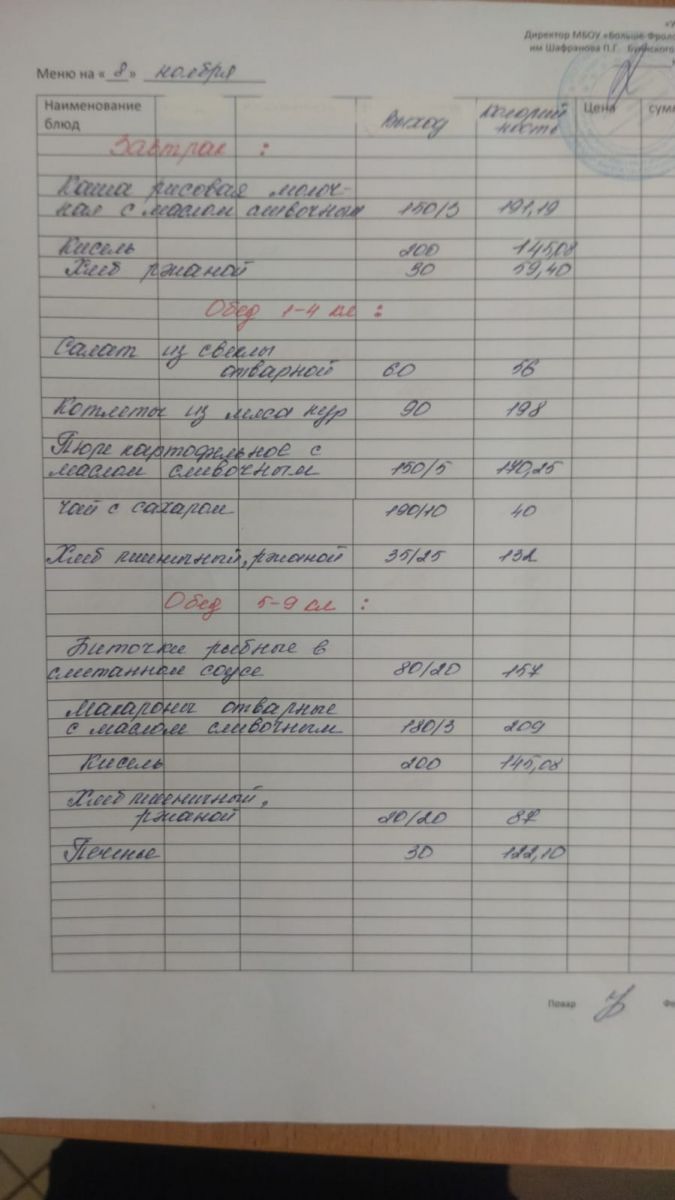 Директор МБОУ «Больше-Фроло
им Шафранова П.Г. Буинского
Меню на « 8 » ноября
Наименование блюд Выход Калорий ность Цена сумм
Завтрак :
Каша рисовая молоч-
ная с маслом сливочным 150/3 191,19
Кисель 200 145,08
Хлеб ржаной 30 59,40
Обед 1-4 кл :
Салат из свеклы
отварной 60 56
Котлеты из мяса кур 90 198
Пюре картофельное с
маслом сливочным 150/5 170,25
Чай с сахаром 190/10 40
Хлеб пшеничный, ржаной 35/25 132
Обед 5-9 кл :
Биточки рыбные в
сметанном соусе 80/20 157
Макароны отварные
с маслом сливочным 180/3 209
Кисель 200 145,08
Хлеб пшеничный,
ржаной 20/20 87
Печенье 30 122,10
Повар